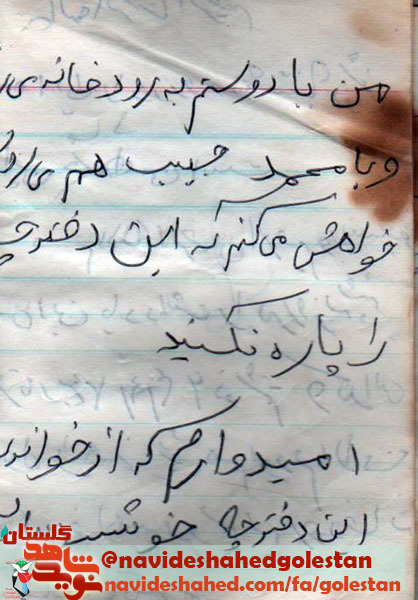 من با دوستم به رودخانه می
و با محمد حبیب هم می رو
خواهش می کنم که این دفترچ
را پاره نکنید
امیدوارم که از خواند
این دفترچه خوشت
گلستان
نوید شاهد
@navideshahedgolestan
navideshahed.com/fa/golestan